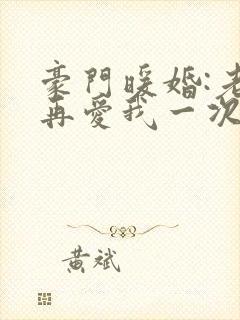 豪門暖婚:老
再愛我一次
黃斌